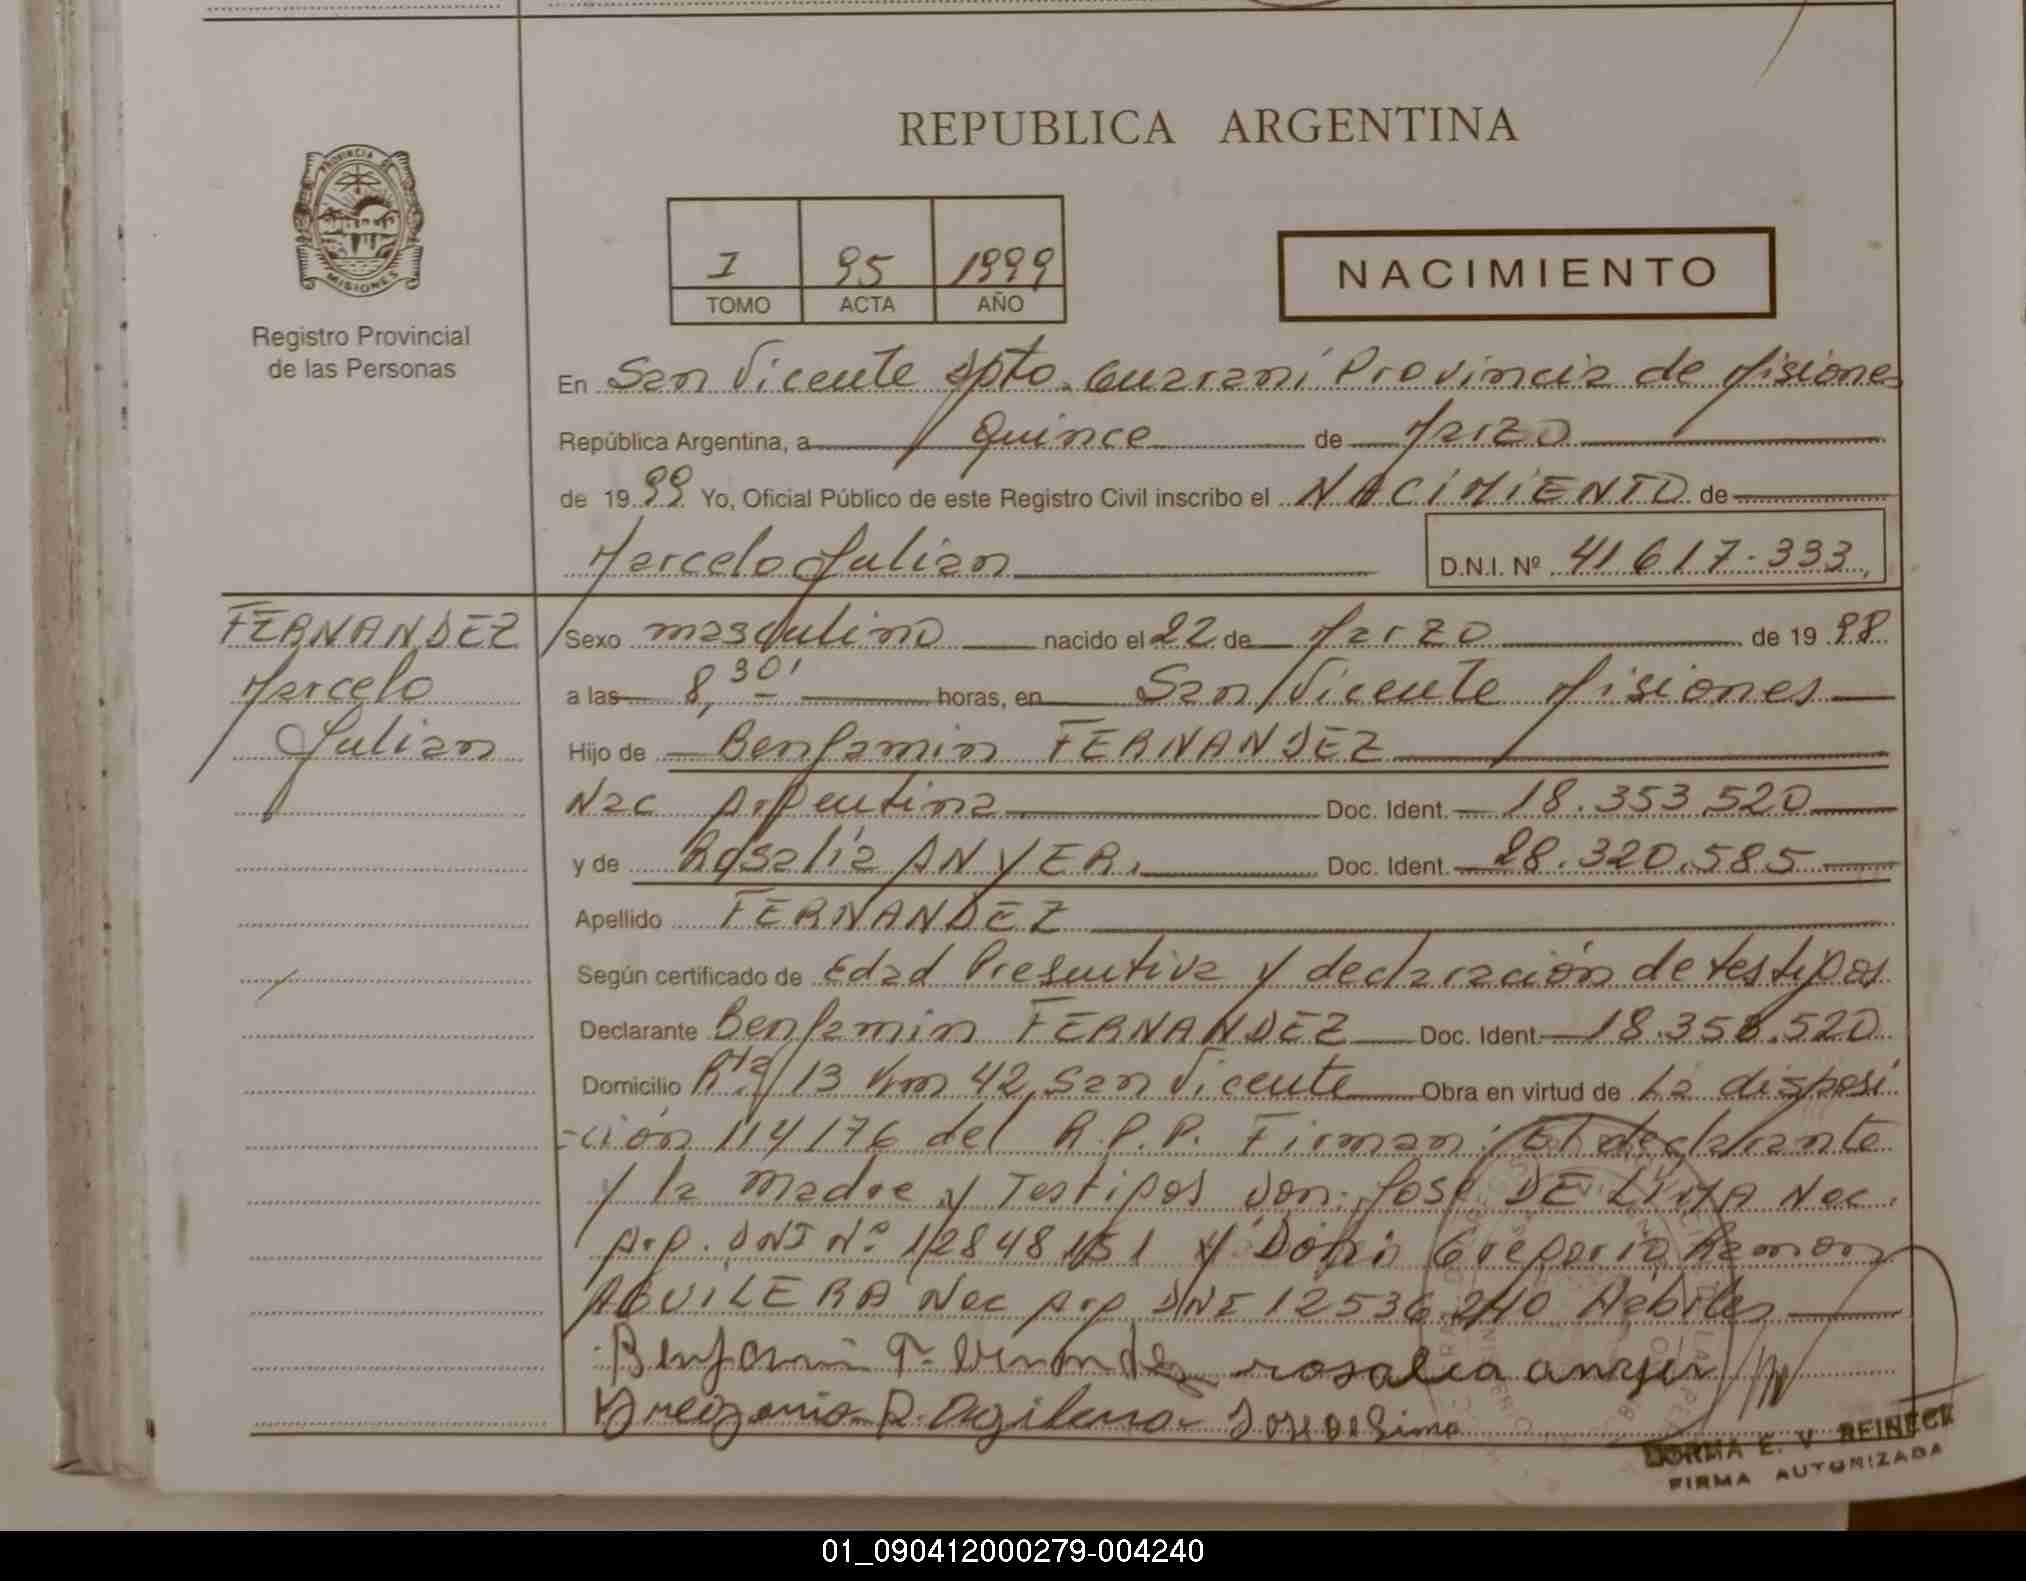 REPUBLICA ARGENTINA
PROVINCIA DE
MISIONES
Registro Provincial
de las Personas
I 95 1999
TOMO ACTA AÑO
NACIMIENTO
En San Vicente Dpto. Guarani Provincia de Misiones
República Argentina, a Quince de Marzo
de 1999 Yo, Oficial Público de este Registro Civil inscribo el NACIMIENTO de
Marcelo Julian D.N.I. Nº 41617.333
FERNANDEZ
Marcelo
Julian
Sexo masculino nacido el 22 de Marzo de 1998
a las 8,30' horas, en San Vicente Misiones
Hijo de Benjamin FERNANDEZ
Nac Argentina Doc. Ident. 18.353.520
y de Rosalia ANYER. Doc. Ident. 28.320.585
Apellido FERNANDEZ
Según certificado de Edad Presuntiva y declaración de testigos
Declarante Benjamin FERNANDEZ Doc. Ident. 18.353.520
Domicilio Rta 13 Km 42 San Vicente Obra en virtud de La disposi
-ción 114/76 del R.P.P. Firman: El declarante
y la madre y Testigos Don: José DE LIMA Nac.
Arg. DNI Nº 12848151 y Don Gregorio Ramon
AGUILERA Nac Arg DNI 12536240 Habiles
Benjamin Fernandez rosalia anyer
Gregorio R. Agilera Jose de Lima
NORMA E. V. REINECK
FIRMA AUTORIZADA
01_090412000279-004240